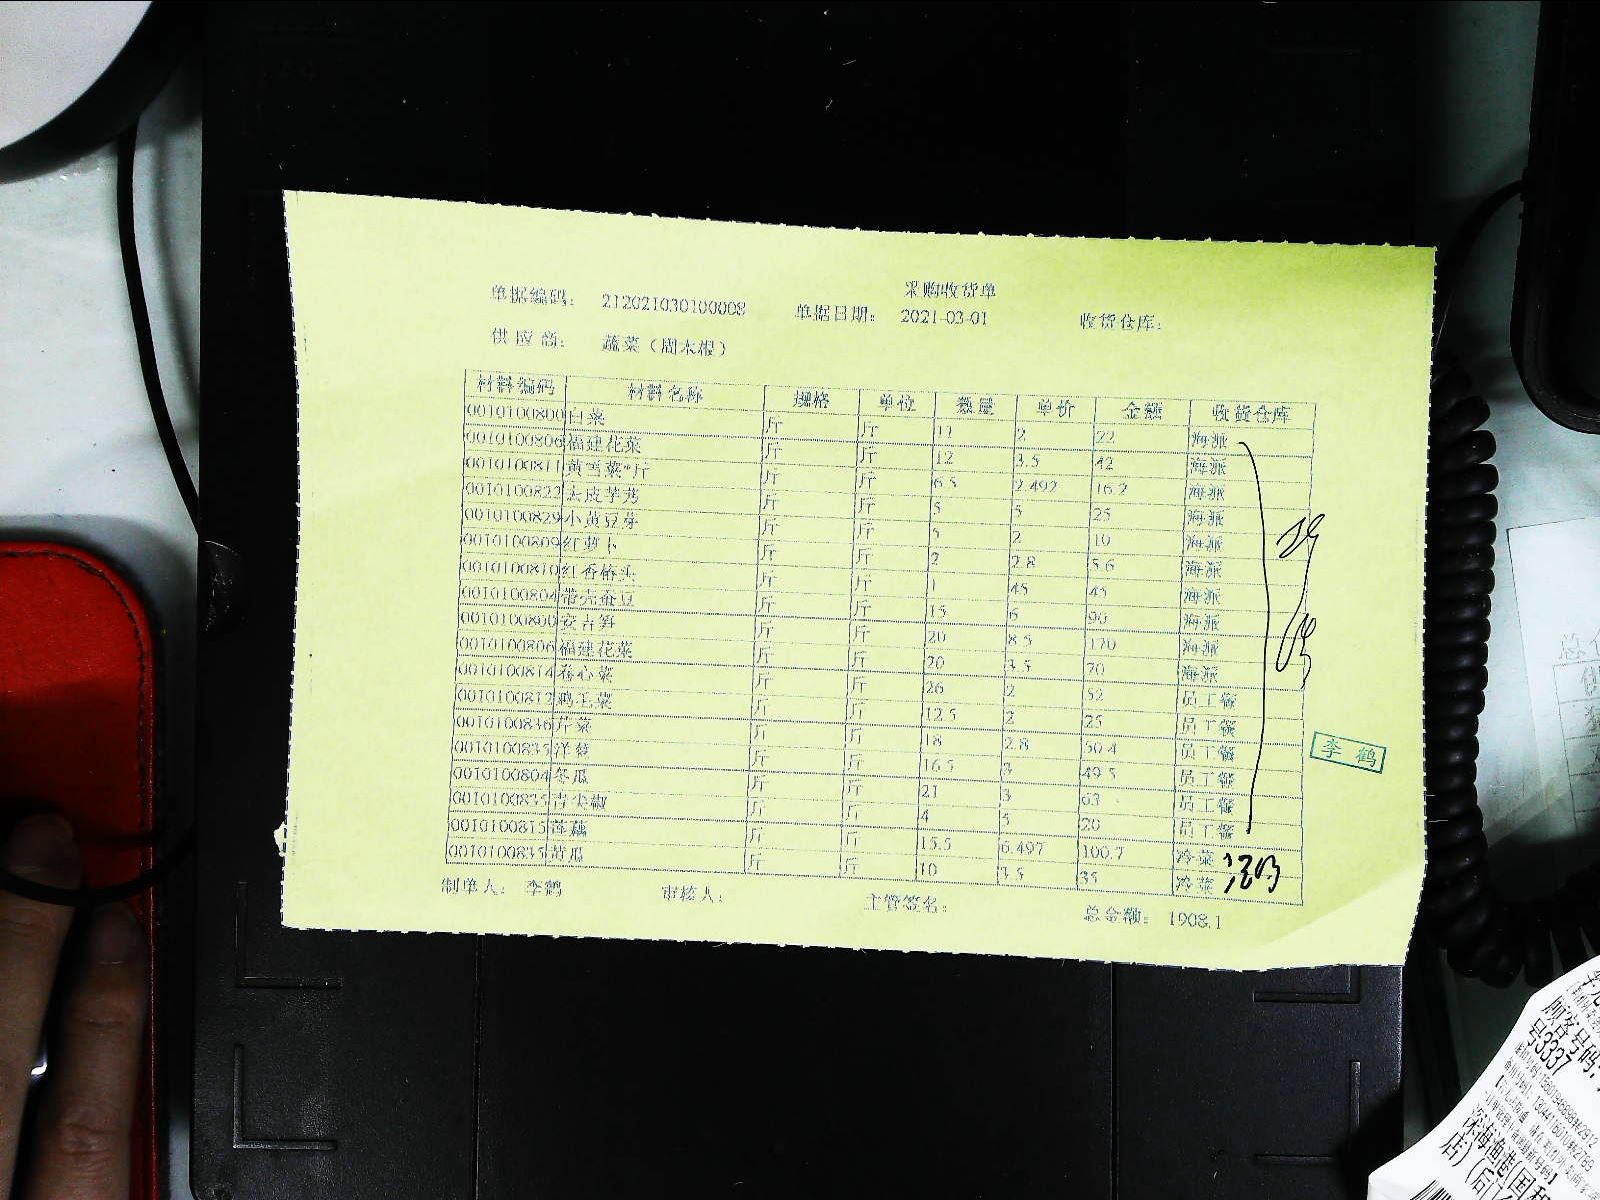 采购收货单
单据编码： 212021030100008 单据日期： 2021-03-01 收货仓库：
供 应 商： 蔬菜（周木根）
材料编码 材料名称 规格 单位 数量 单价 金额 收货仓库
0010100800 白菜 斤 斤 11 2 22 海派
0010100806 福建花菜 斤 斤 12 3.5 42 海派
0010100811 黄雪菜*斤 斤 斤 6.5 2.492 16.2 海派
0010100822 去皮芋艿 斤 斤 5 5 25 海派
0010100829 小黄豆芽 斤 斤 5 2 10 海派
0010100809 红萝卜 斤 斤 2 2.8 5.6 海派
0010100810 红香椿头 斤 斤 1 45 45 海派
0010100804 带壳蚕豆 斤 斤 15 6 90 海派
0010100800 安吉笋 斤 斤 20 8.5 170 海派
0010100806 福建花菜 斤 斤 20 3.5 70 海派
0010100814 卷心菜 斤 斤 26 2 52 员工餐
0010100812 鸡毛菜 斤 斤 12.5 2 25 员工餐
0010100836 芹菜 斤 斤 18 2.8 50.4 员工餐
0010100835 洋葱 斤 斤 16.5 3 49.5 员工餐
0010100804 冬瓜 斤 斤 21 3 63 员工餐
0010100835 青尖椒 斤 斤 4 5 20 员工餐
0010100815 莲藕 斤 斤 15.5 6.497 100.7 冷菜
0010100835 黄瓜 斤 斤 10 3.5 35 冷菜
李 鹤
制单人： 李鹤 审核人： 主管签名： 总金额： 1908.1
顾客号码：
号3337